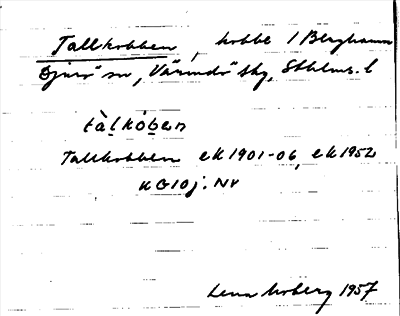 Tallkobben, kobbe i Berghamn
Djurö sn, Värmdö skg, Sthlms. l
tàlkóben
Tallkobben ek 1901-06, ek 1952
KG10j. NV
Lena Moberg 1957